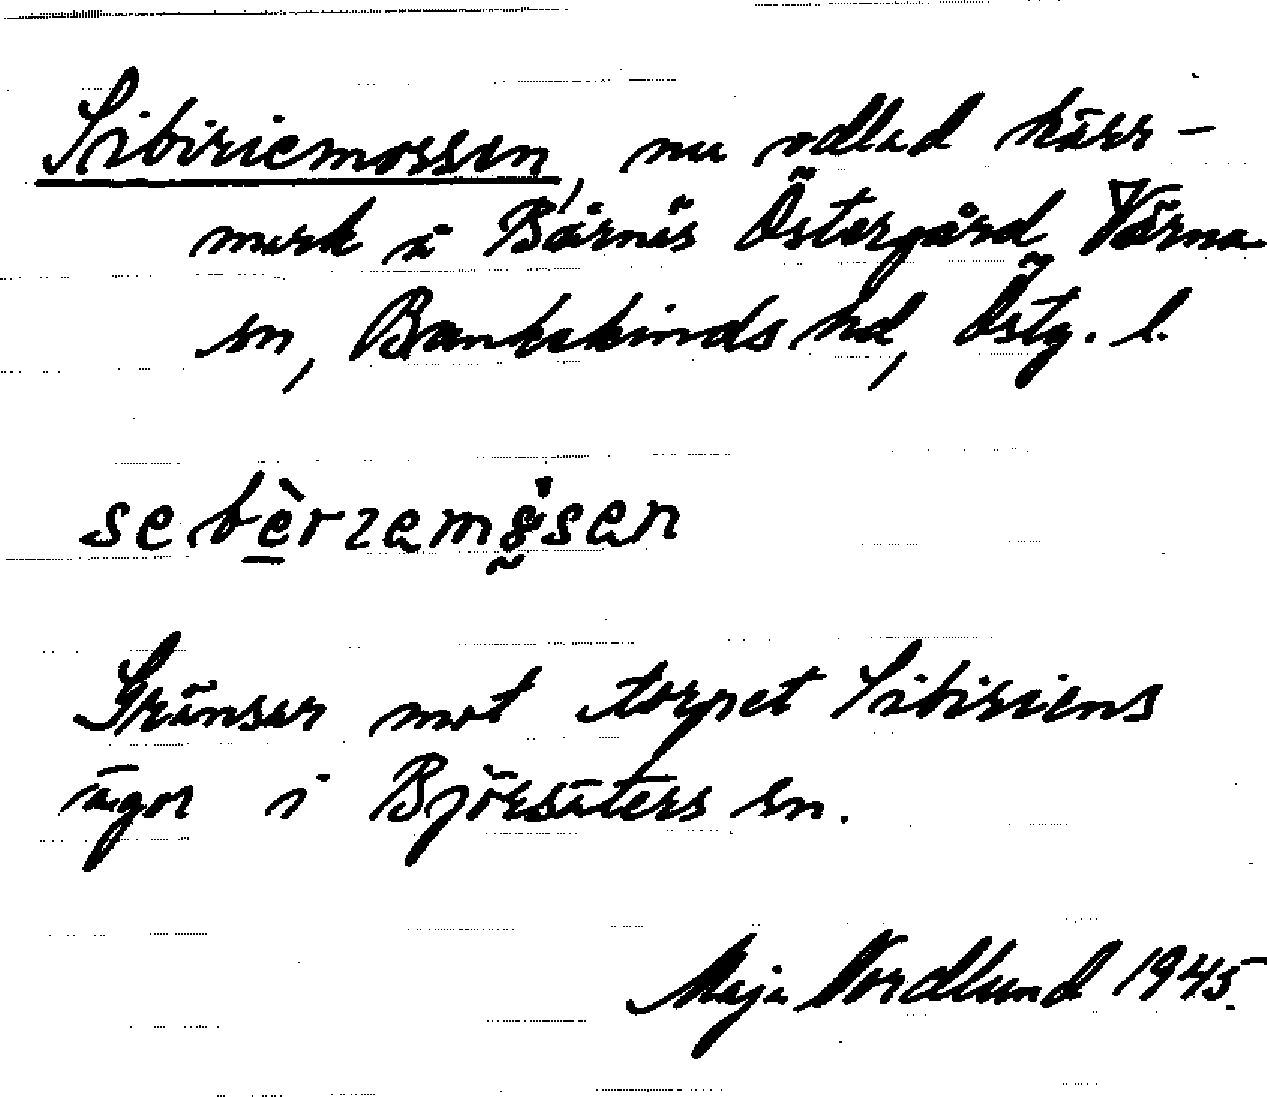 Sibiriemossen, nu odlad kärr-
mark å Bårnäs Östergård Värna
sn, Bankekinds hd, Östg. l.
Gränsar mot torpet Sibiriens
ägor i Björsäters sn.
Maja Nordlund 1945.